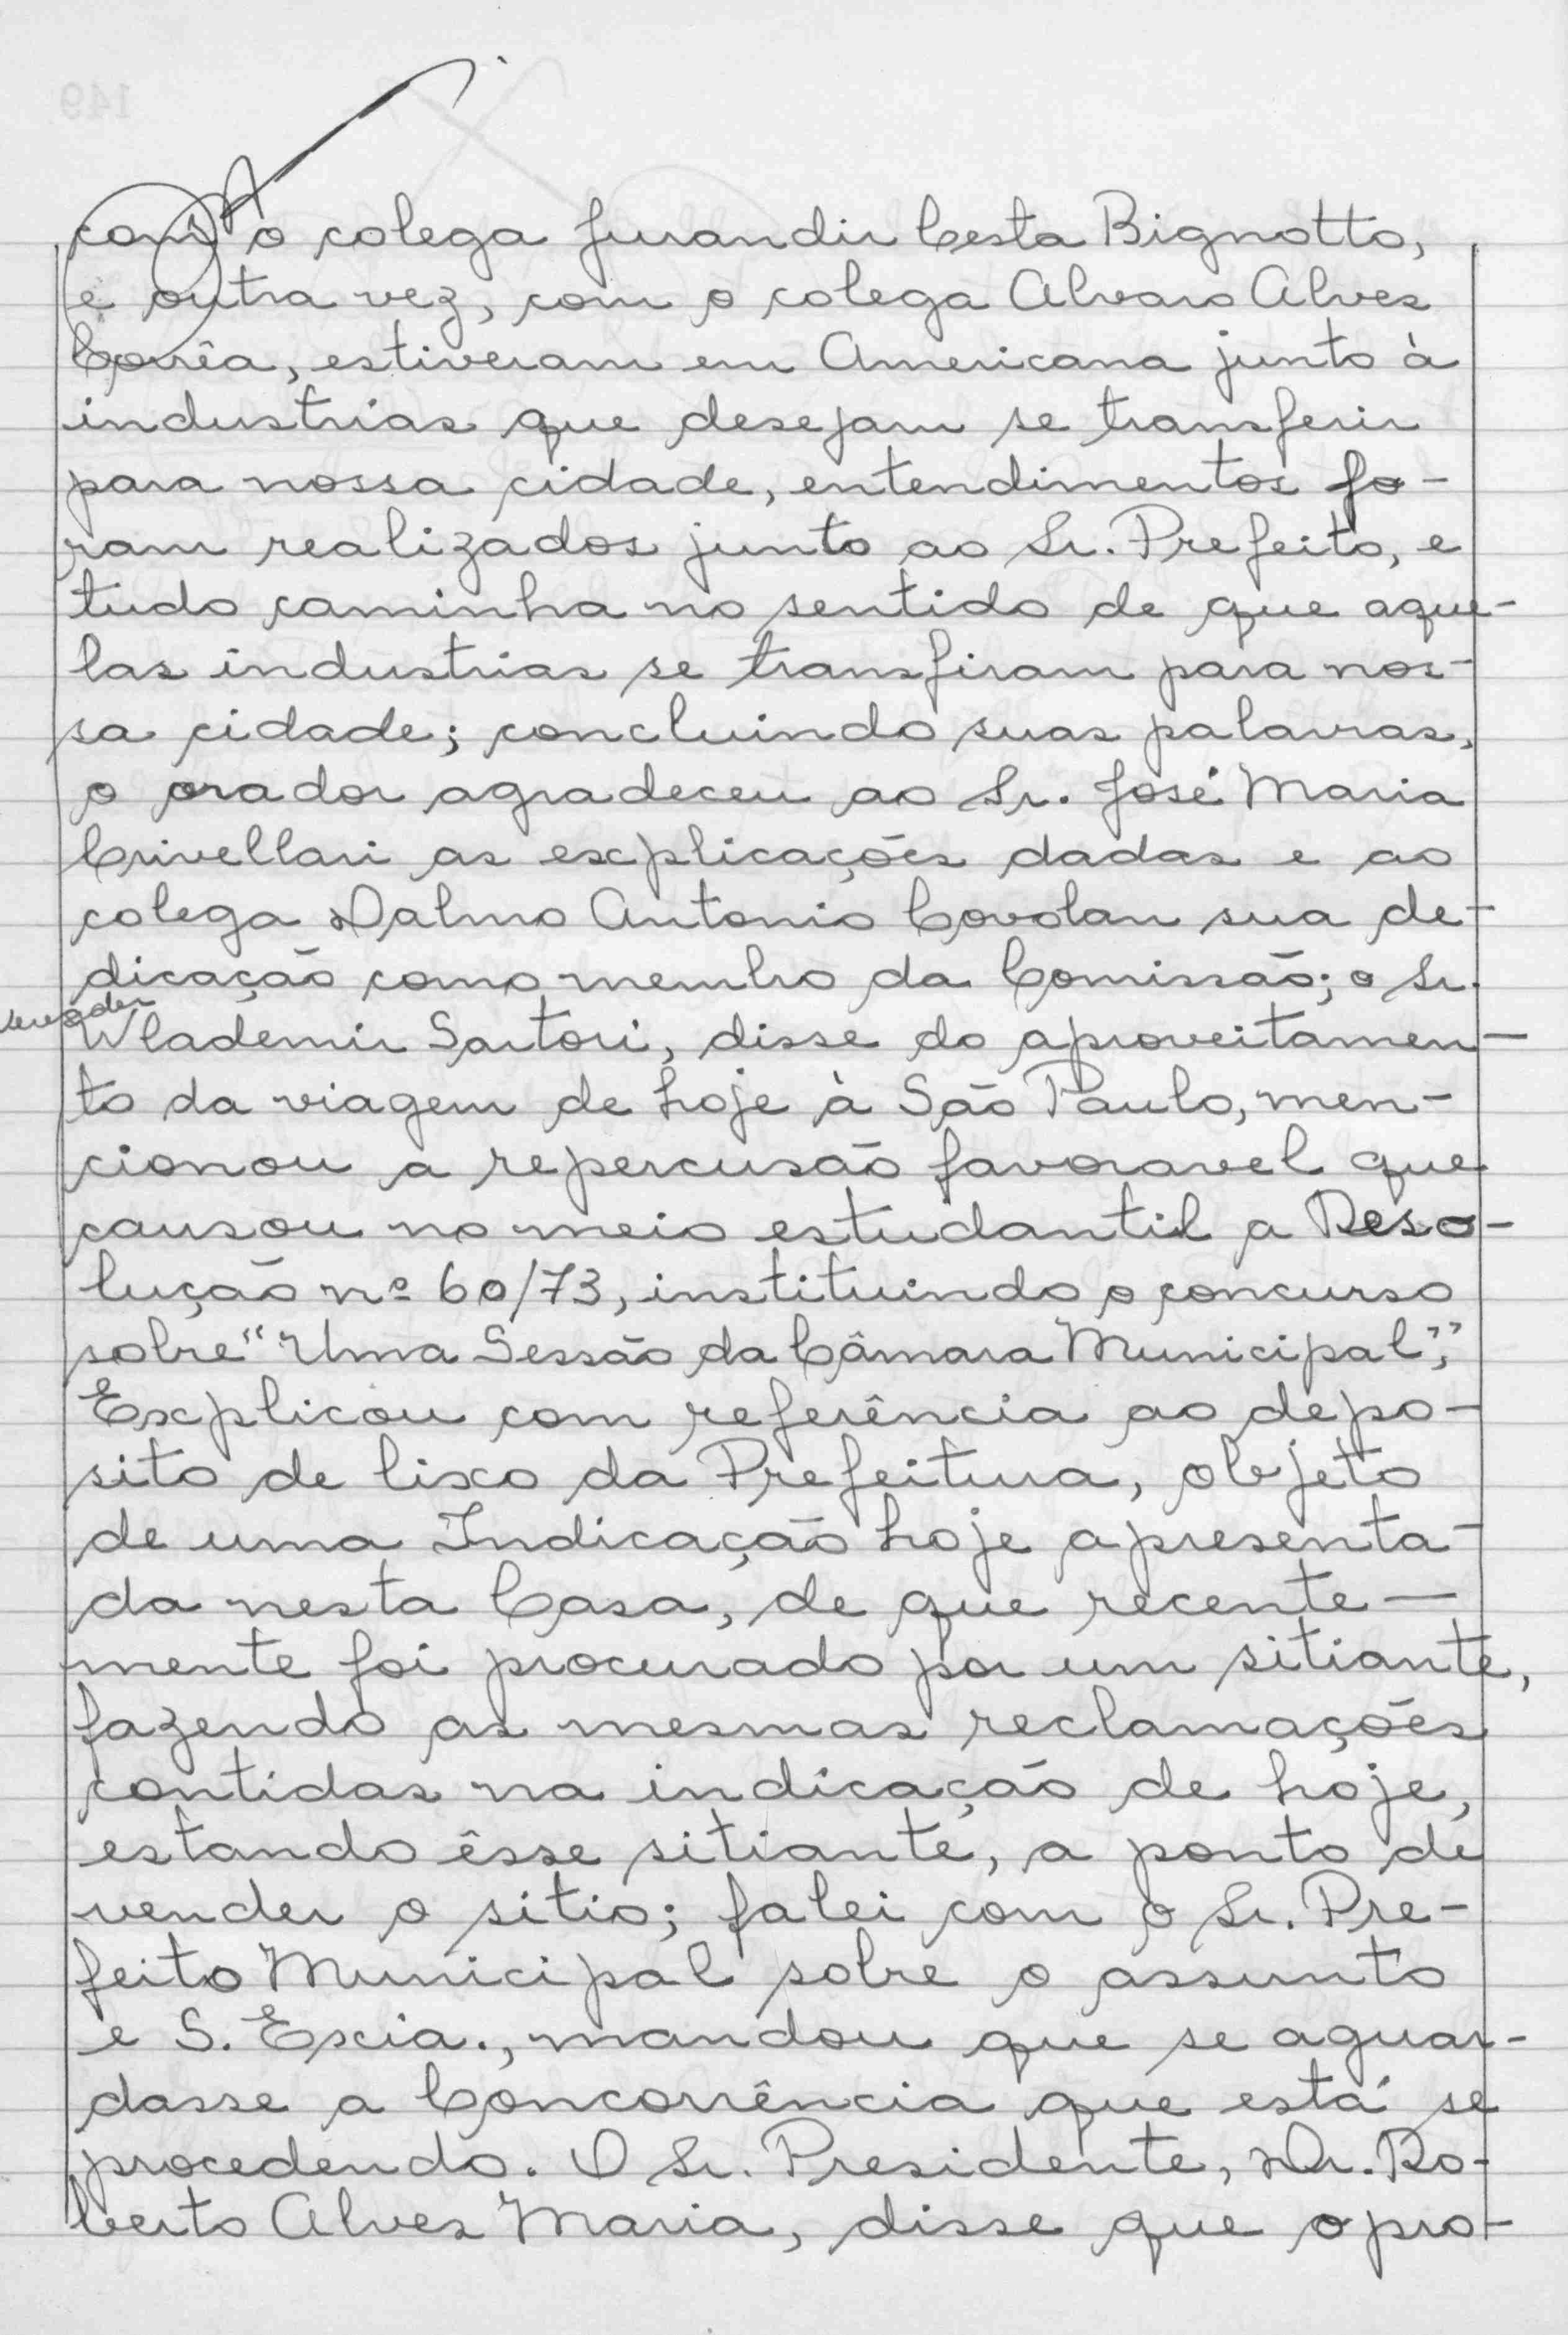 com o colega Jurandir Cesta Bignotto,
e outra vez, com o colega Alvaro Alves
Corrêa, estiveram em Americana junto à
industrias que desejam se transferir
para nossa cidade, entendimentos fo-
ram realizados junto ao Sr. Prefeito, e
tudo caminha no sentido de que aque-
las industrias se transfiram para nos-
sa cidade; concluindo suas palavras,
o orador agradeceu ao Sr. José Maria
Crivellari as explicações dadas e ao
colega Dalmo Antonio Covolan sua de-
dicação como membro da Comissão; o Sr.
vereador
Wlademir Sartori, disse do aproveitamen-
to da viagem de hoje à São Paulo, men-
cionou a repercusão favoravel que
causou no meio estudantil a Reso-
lução nº 60/73, instituindo o concurso
sobre "Uma Sessão da Câmara Municipal",
Explicou com referência ao depo-
sito de lixo da Prefeitura, objeto
de uma Indicação hoje apresenta-
da nesta Casa, de que recente-
mente foi procurado por um sitiante,
fazendo as mesmas reclamações
contidas na indicação de hoje,
estando êsse sitiante, a ponto de
vender o sitio; falei com o Sr. Pre-
feito Municipal sobre o assunto
e S. Excia., mandou que se aguar-
dasse a Concorrência que está se
procedendo. O Sr. Presidente, Dr. Ro-
berto Alves Maria, disse que o pro-